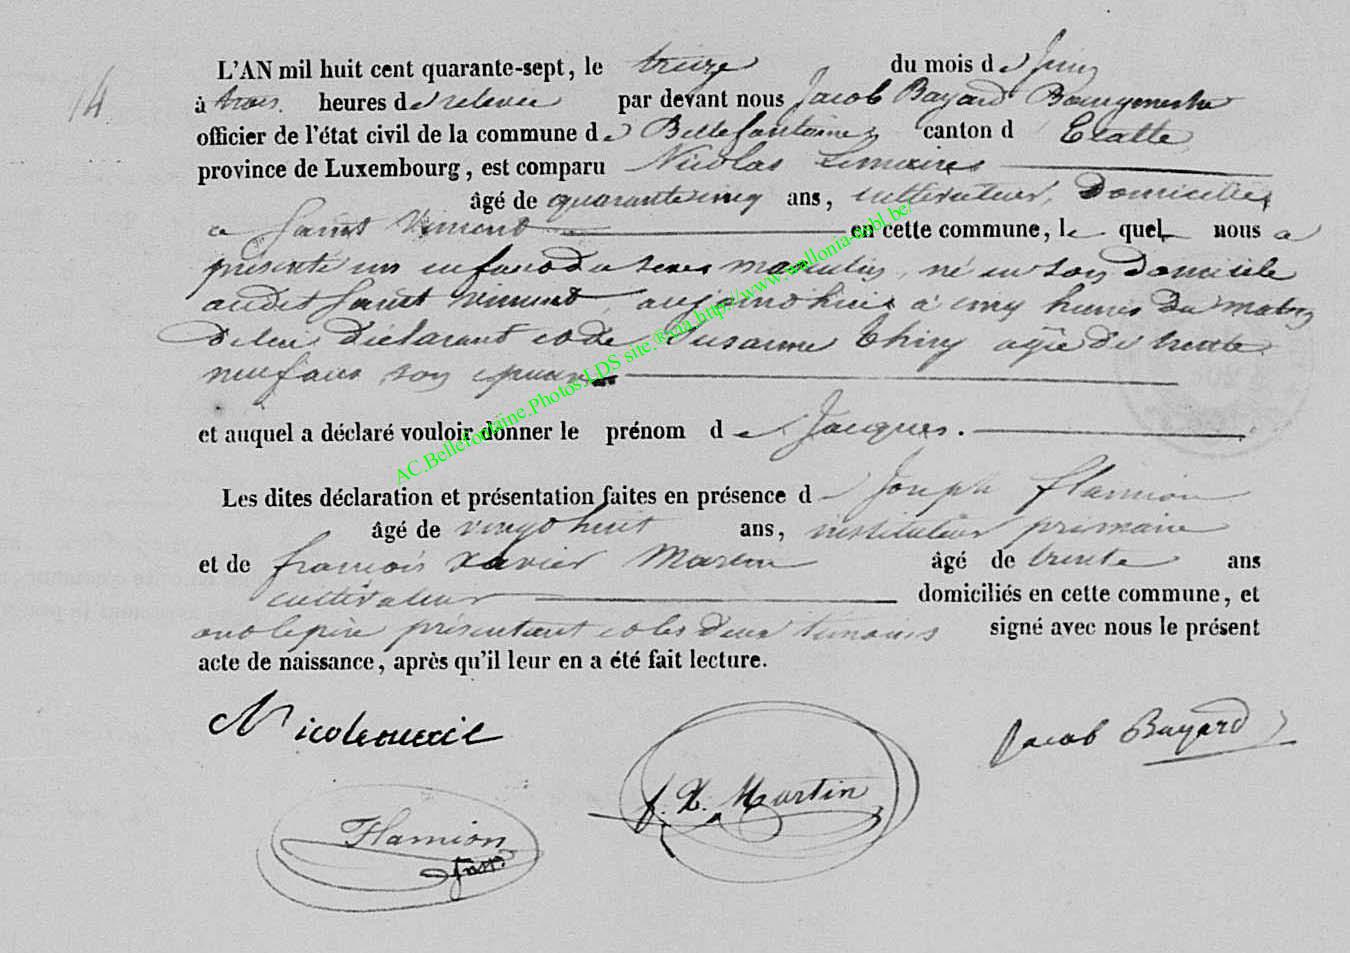 14
L'AN mil huit cent quarante-sept, le treize du mois de Juin
à trois heures de relevée par devant nous Jacob Bayard Bourgmestre
officier de l'état civil de la commune de Bellefontaine canton d Etalle
province de Luxembourg, est comparu Nicolas Lemaire
âgé de quarante cinq ans, cultivateur, domicilié
a Saint Vincent en cette commune, le quel nous a
présenté un enfant du sexe masculin, né en son domicile
audit Saint Vincent, aujourd'hui à cinq heures du matin
de lui déclarant et de Susanne Thiry agée de trente
neuf ans, son épouse
et auquel a déclaré vouloir donner le prénom de Jacques.
Les dites déclaration et présentation faites en présence de Joseph Flamion
âgé de vingt huit ans, instituteur primaire
et de françois Xavier Martin âgé de trente ans
cultivateur domiciliés en cette commune, et
ont le père présentant et les deux témoins signé avec nous le présent
acte de naissance, après qu'il leur en a été fait lecture.
Jacob Bayard
f. X. Martin
Flamion
AC.Bellefontaine.Photos.LDS site.®via.http://www.wallonia-asbl.be/